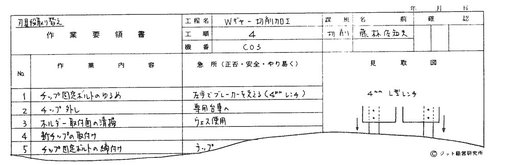 年 月 日
刃具段取り替え
工程名
Wギヤー切削加工
課 班
名 前
確 認
作業要領書
工 順
4
切削
機 番
C03
No
作 業 内 容
急 所 (正否・安全・やり易く)
見 取 図
1
チップ固定ボルトのゆるめ
左手でブレーカーを支える(4mmレンチ)
4mm L型レンチ
2
チップ外し
専用台車へ
3
ホルダー取付面の清掃
ウェス使用
4
新チップの取付け
5
チップ固定ボルトの締付け
©ジット経営研究所